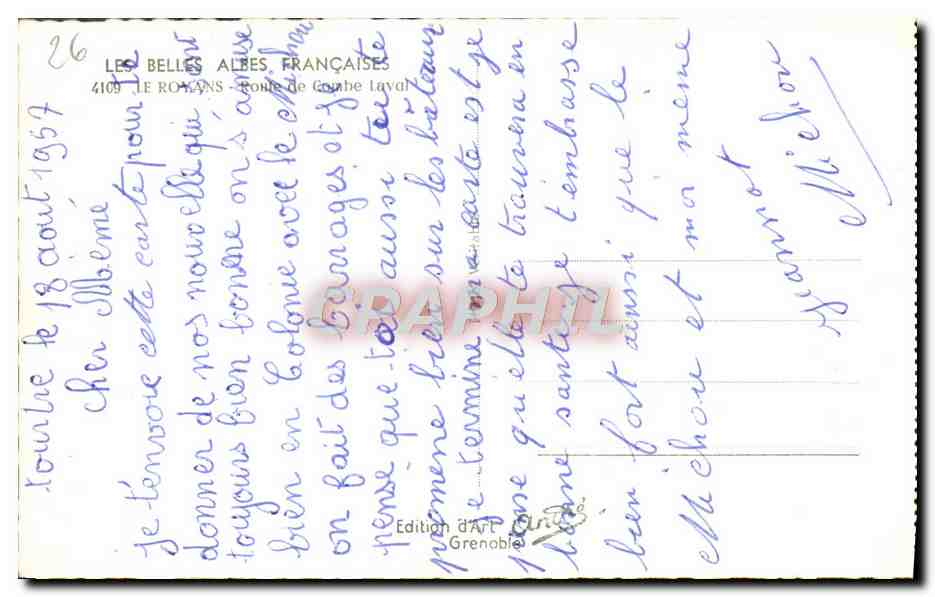 26
LES BELLES ALPES FRANÇAISES
4109 LE ROYANS - Route de Combe Laval
le 18 aout 1957
cher Mémé
Je t'envoie cette carte pour te
donner de nos nouvelle qui sont
toujours bien bonne on s'amuse
bien en Colonie avec le Michou
on fait des barrages et je
pense que toi aussi tu te
promene bien sur les bâteaux
je termine ma carte est je
pense qu'elle te trouvera en
bonne santé je t'embrasse
bien fort ainsi que le
Michou et moi meme
Jeannot
Michou
CRAPHIL
Edition d'Art André
Grenoble